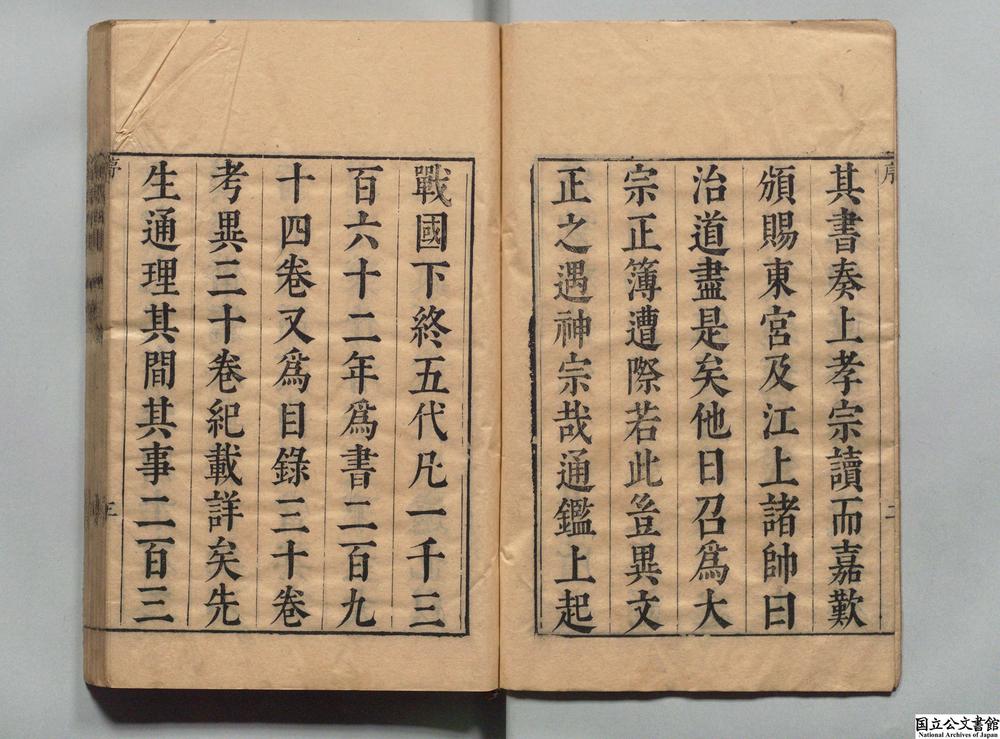 其書奏上孝宗讀而嘉歎
頒賜東宮及江上諸帥曰
治道盡是矣他日召爲大
宗正簿遭際若此豈異文
正之遇神宗哉通鑑上起
戰國下終五代凡一千三
百六十二年爲書二百九
十四卷又爲目錄三十卷
考異三十卷紀載詳矣先
生通理其間其事二百三
序
二
三
国立公文書館
National Archives of Japan